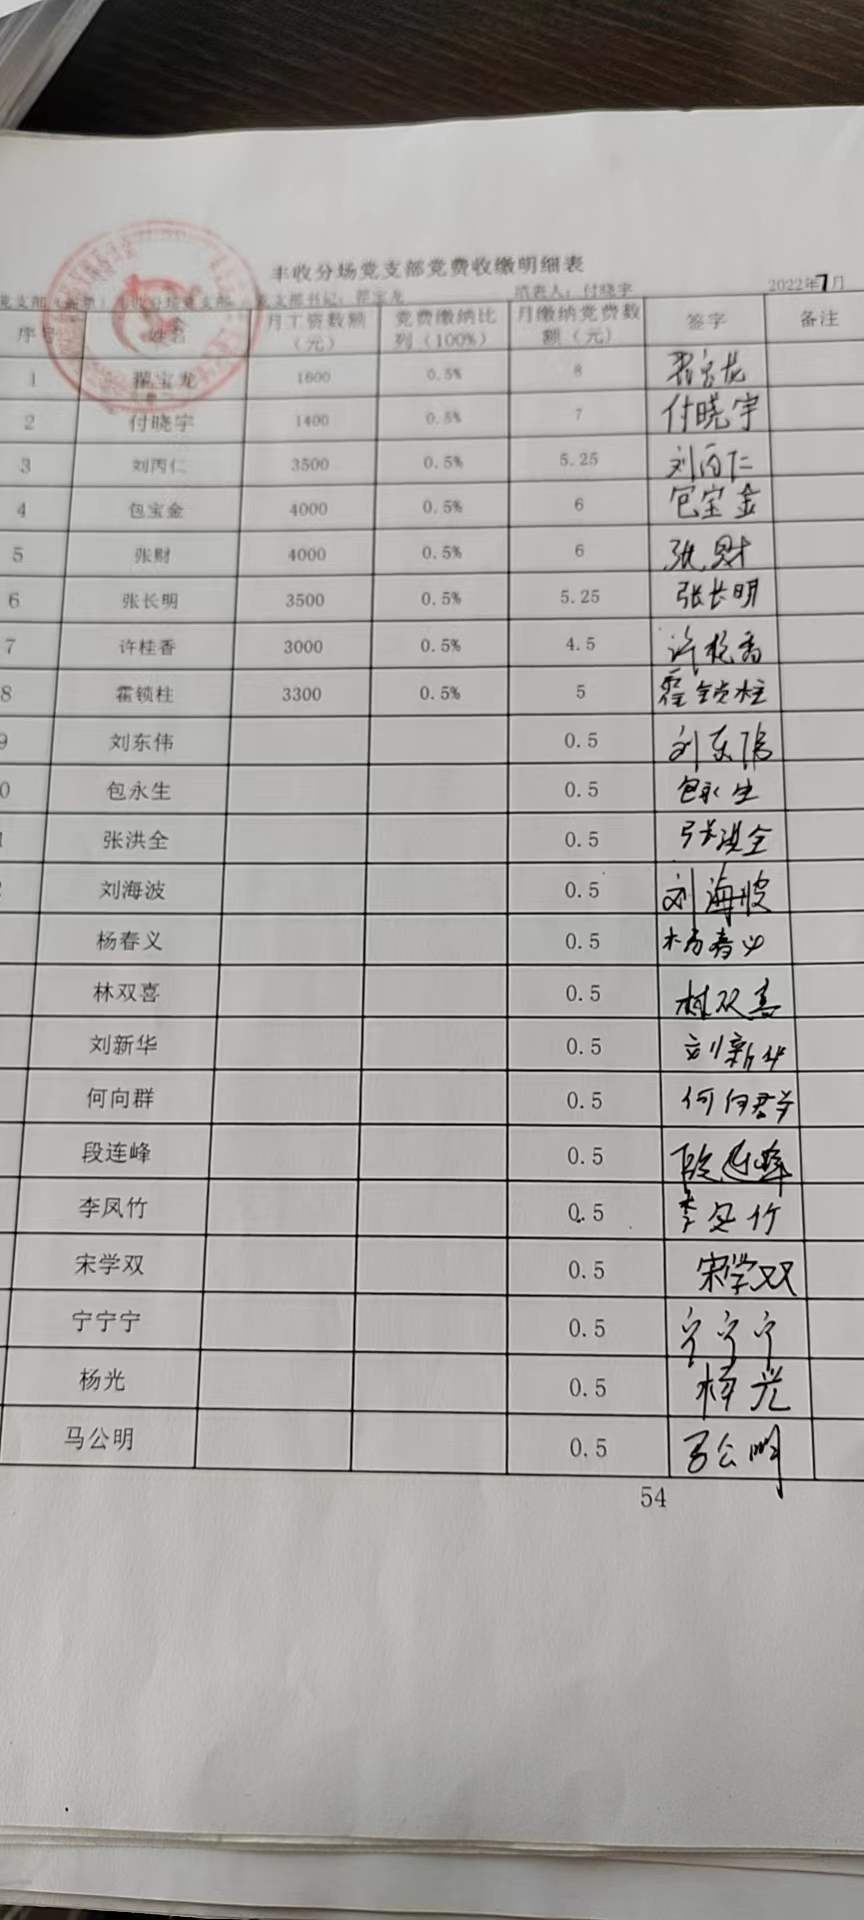 丰收分场党支部党费收缴明细表
党支部书记：翟宝龙 填表人：付晓宇 2022年7月
序号 姓名 月工资数额（元） 党费缴纳比列（100%） 月缴纳党费数额（元） 签字 备注
1 翟宝龙 1600 0.5% 8 翟宝龙
2 付晓宇 1400 0.5% 7 付晓宇
3 刘丙仁 3500 0.5% 5.25 刘丙仁
4 包宝金 4000 0.5% 6 包宝金
5 张财 4000 0.5% 6 张财
6 张长明 3500 0.5% 5.25 张长明
7 许桂香 3000 0.5% 4.5 许桂香
8 霍锁柱 3300 0.5% 5 霍锁柱
9 刘东伟 0.5 刘东伟
0 包永生 0.5 包永生
张洪全 0.5 张洪全
刘海波 0.5 刘海波
杨春义 0.5 杨春义
林双喜 0.5 林双喜
刘新华 0.5 刘新华
何向群 0.5 何向群
段连峰 0.5 段连峰
李凤竹 0.5 李凤竹
宋学双 0.5 宋学双
宁宁宁 0.5 宁宁宁
杨光 0.5 杨光
马公明 0.5 马公明
54